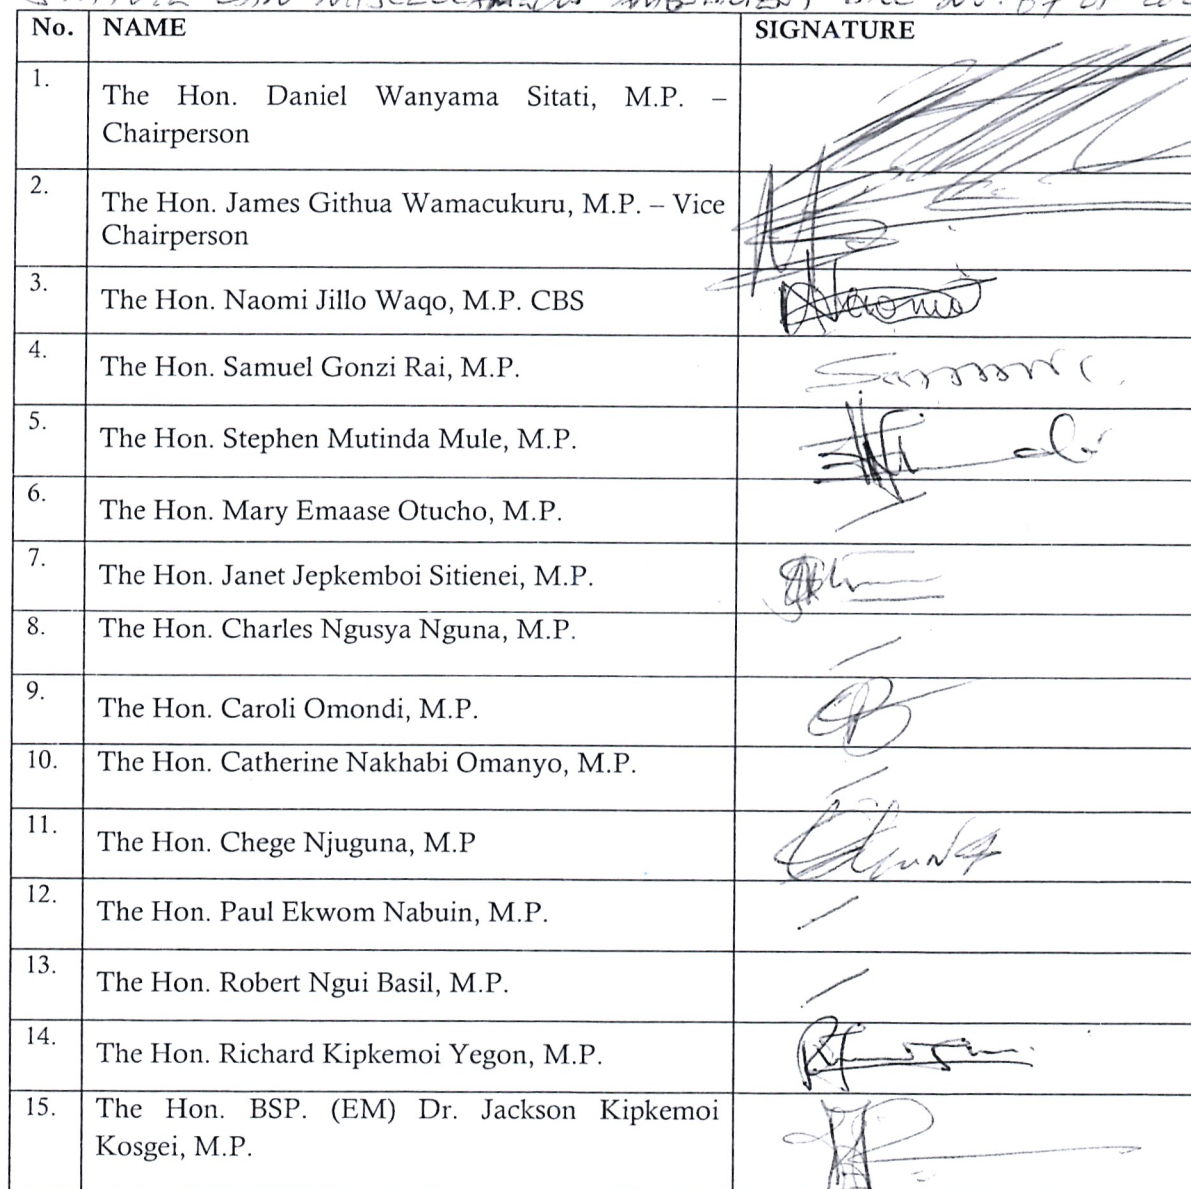 No. NAME SIGNATURE
1. The Hon. Daniel Wanyama Sitati, M.P. –
Chairperson
2. The Hon. James Githua Wamacukuru, M.P. – Vice
Chairperson
3. The Hon. Naomi Jillo Waqo, M.P. CBS Naomi
4. The Hon. Samuel Gonzi Rai, M.P.
5. The Hon. Stephen Mutinda Mule, M.P.
6. The Hon. Mary Emaase Otucho, M.P.
7. The Hon. Janet Jepkemboi Sitienei, M.P.
8. The Hon. Charles Ngusya Nguna, M.P.
9. The Hon. Caroli Omondi, M.P.
10. The Hon. Catherine Nakhabi Omanyo, M.P.
11. The Hon. Chege Njuguna, M.P
12. The Hon. Paul Ekwom Nabuin, M.P.
13. The Hon. Robert Ngui Basil, M.P.
14. The Hon. Richard Kipkemoi Yegon, M.P.
15. The Hon. BSP. (EM) Dr. Jackson Kipkemoi
Kosgei, M.P.